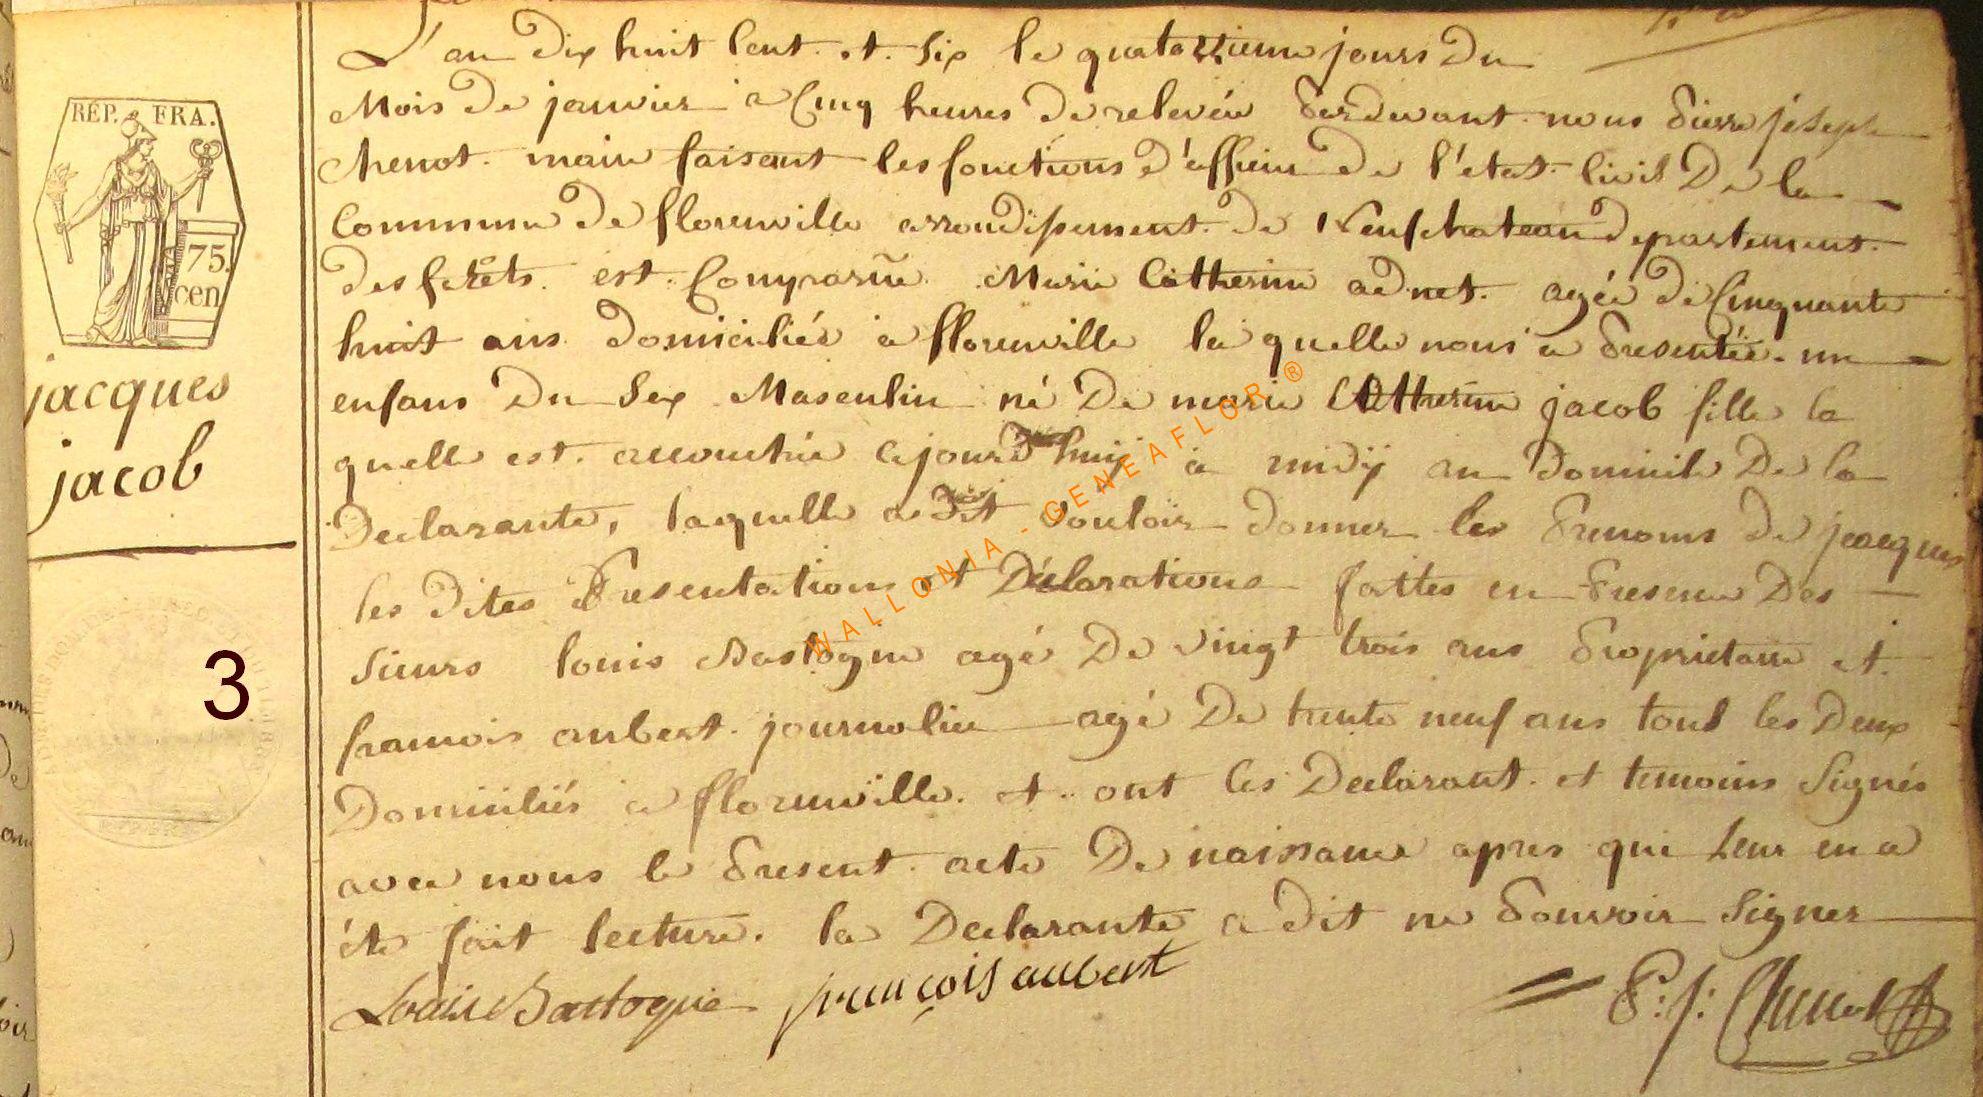 REP. FRA.
75.
cen
jacques
jacob
3
L'an dix huit Cent et Six le quatorzieme jours Du
Mois De janvier a Cinq heures De relevée Pardevant nous Pierre jôseph
chenot maire faisant les fonctions d'officier De l'état Civil De la
Commune De florenville arrondissement De Neufchateau Departement
des forêts est Comparue Marie Catherine adnet agée De Cinquante
huit ans Domiciliée à florenville la quelle nous a Presentée un
enfans Du Sex Masculin né De marie Catherine jacob fille la
quelle est accouchée ajourd'huij à midij au Domicile De la
Declarante, laquelle a Dit vouloir donner les Prenoms De jacques
les Dites Presentations et Déclarations faittes en Presence Des
Sieurs louis Bastogne agé De vingt trois ans Proprietaire et
francois aubert journalier agé De trente neuf ans tous les Deux
Domiciliés a florenville et ont les Declarant et temoins Signés
avec nous le Present acte De naissance apres que leur en a
été fait lecture. la Declarante a Dit ne Pouvoir Signer
Louis Bastogne françois aubert P: j: Chenot
WALLONIA - GENEAFLOR ®